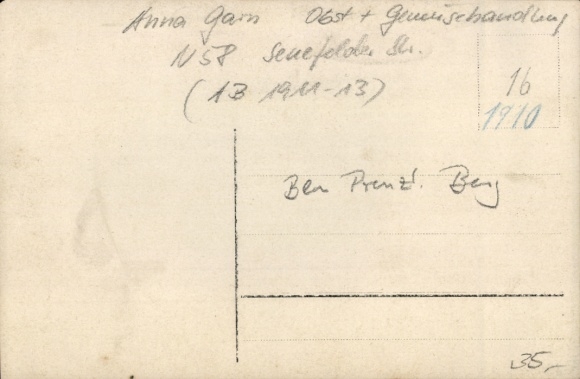 Anna Garn Obst + Gemüsehandlung
N58 Senefelder Str.
(1B 1911-13)
16
1910
Bln Prenzl. Berg
35,-